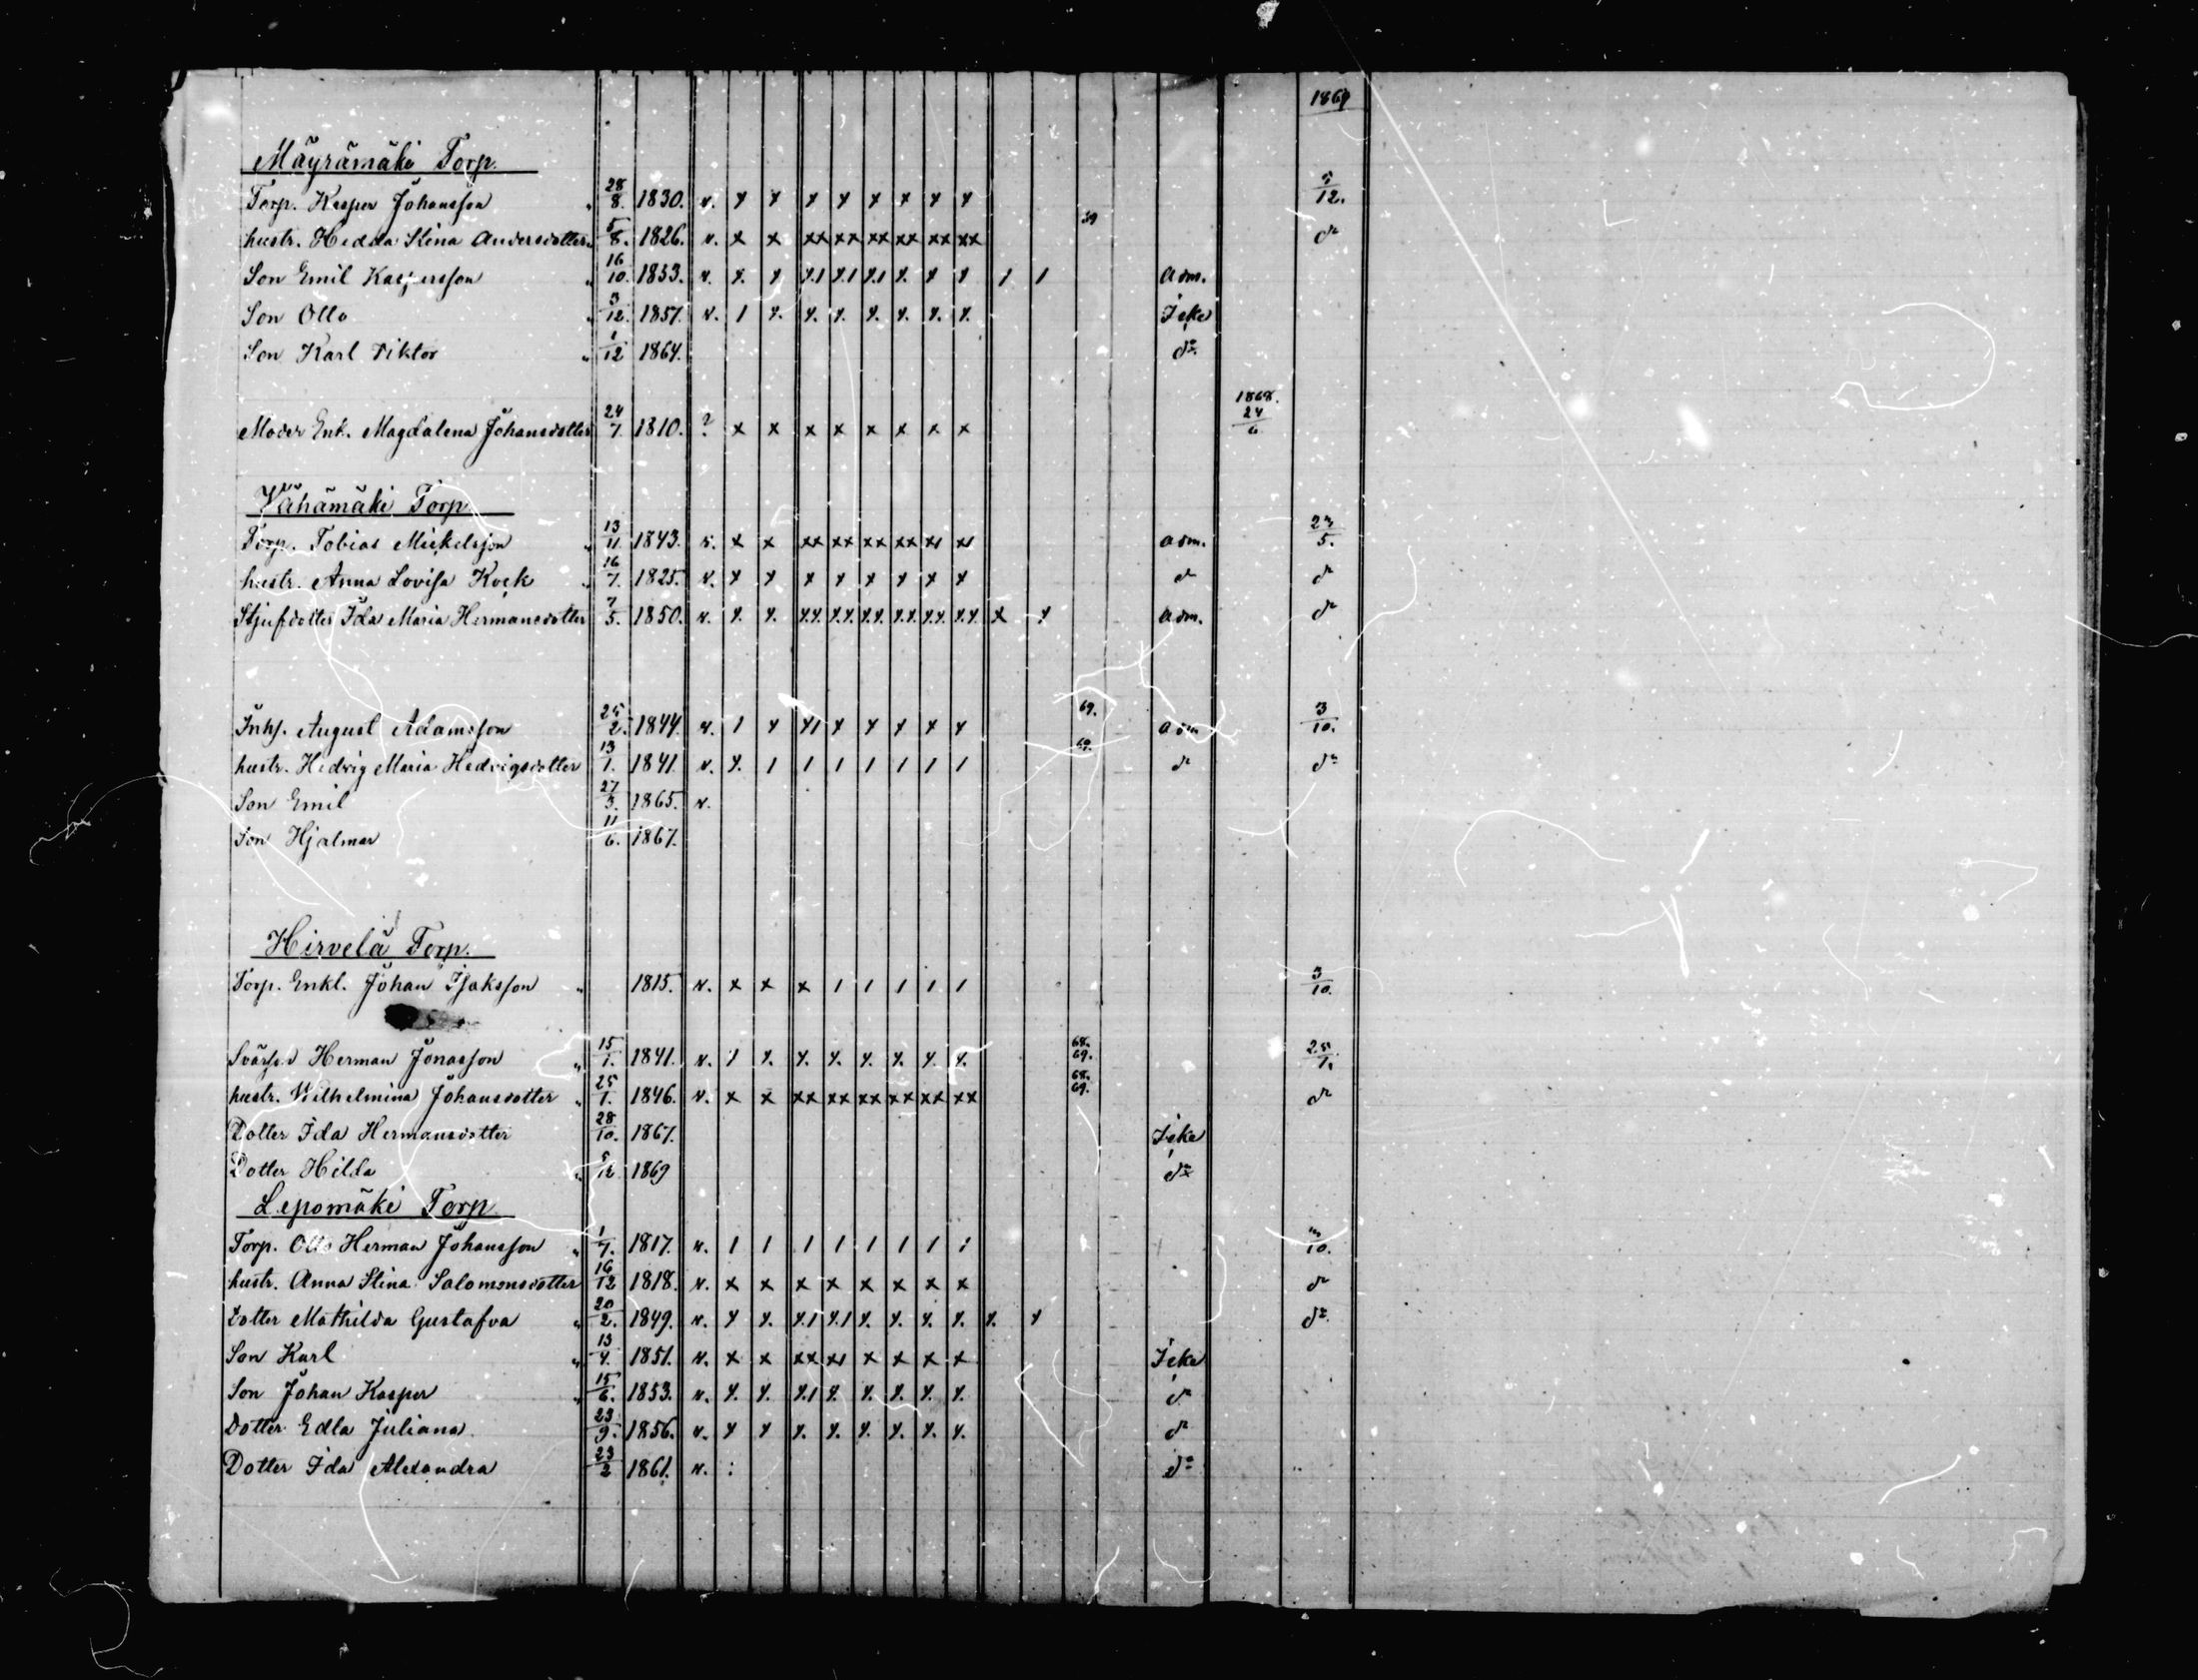 1869
Mäyrämäki Torp.
Torp. Kasper Johansson 28/8. 1830. v. 5/12.
hustr. Hedda Stina Andersdotter 5/8. 1826. v. x x xx xx xx xx xx xx d:o
Son Emil Kaspersson 16/10. 1853. v. 1 1 Adm.
Son Otto 3/12. 1857. v. Icke
Son Karl Viktor 1/12 1864. d:o
1868.
Moder Enk. Magdalena Johansdotter 24/7. 1810. ? x x x x x x x x 24/6
Vähämäki Torp
Torp. Tobias Mickelsson 13/11. 1843. adm. 23/5.
hustr. Anna Lovisa Kock 16/7. 1825. v. d:o d:o
Stjufdotter Ida Maria Hermansdotter 7/5. 1850. v. adm. d:o
Inhs. August Adamsson 25/2. 1844. v. 69. adm 3/10.
hustr. Hedvig Maria Hedvigsdotter 13/1. 1841. v. 69. d:o d:o
Son Emil 27/3. 1865. v.
Son Hjalmar 11/6. 1867.
Hirvelä Torp.
Torp. Enkl. Johan Isaksson 1815. v. x x x 1 1 1 1 1 3/10.
Svärson Herman Jonasson 15/1. 1841. v. 68. 69. 25/7.
hustr. Wilhelmina Johansdotter 25/1. 1846. v. x x xx xx xx xx xx xx 68. 69. d:o
Dotter Ida Hermansdotter 28/10. 1867. Icke
Dotter Hilda 1869 d:o
Lepomäki Torp
Torp. Otto Herman Johansson 1/7. 1817. v. 1 1 1 1 1 1 1 1 3/10.
hustr. Anna Stina Salomonsdotter 16/12 1818. v. x x x x x x x x d:o
Dotter Mathilda Gustafva 20/2. 1849. v. d:o
Son Karl 13/4. 1851. v. x x xx x1 x x x x Icke
Son Johan Kasper 15/6. 1853. v. d:o
Dotter Edla Juliana 23/9. 1856. v. d:o
Dotter Ida Alexandra 23/2 1861. v. : d:o